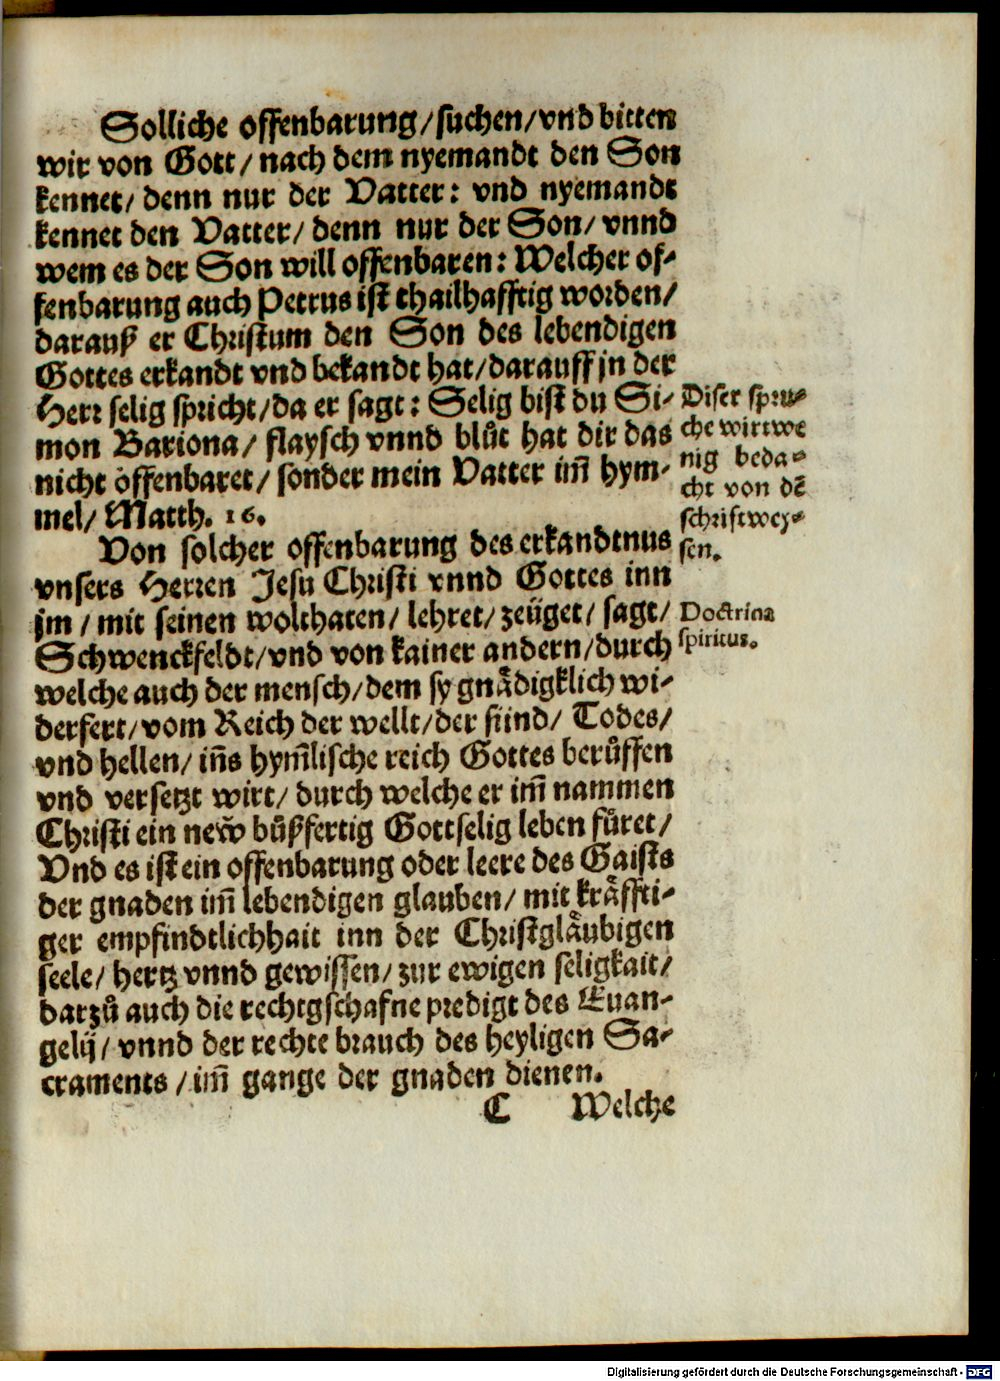 Solliche offenbarung/suchen/vnd bitten
wir von Gott/ nach dem nyemandt den Son
kennet/ denn nur der Vatter: vnd nyemandt
kennet den Vatter/ denn nur der Son/ vnnd
wem es der Son will offenbaren: Welcher of-
fenbarung auch Petrus ist thailhafftig worden/
darauß er Christum den Son des lebendigen
Gottes erkandt vnd bekandt hat/darauff jn der
Herr selig spricht/da er sagt: Selig bist du Si-
mon Bariona/ flaysch vnnd blůt hat dir das
nicht offenbaret/ sonder mein Vatter im̃ hym-
mel/ Matth. 16.
Diser spru-
che wirt we
nig beda-
cht von dẽ
schriftwey-
sen.
Von solcher offenbarung des erkandtnus
vnsers Herren Jesu Christi vnnd Gottes inn
jm / mit seinen wolthaten/ lehret/ zeüget/ sagt/
Schwenckfeldt/vnd von kainer andern/durch
welche auch der mensch/dem sy gnädigklich wi-
derfert/vom Reich der wellt/der sünd/ Todes/
vnd hellen/ iñs hym̃lische reich Gottes berůffen
vnd versetzt wirt/ durch welche er im̃ nammen
Christi ein new̃ bůßfertig Gottselig leben füret/
Vnd es ist ein offenbarung oder leere des Gaists
der gnaden im̃ lebendigen glauben/ mit kräffti-
ger empfindtlichhait inn der Christgläubigen
seele/ hertz vnnd gewissen/ zur ewigen seligkait/
darzů auch die rechtgschafne predigt des Euan-
gelij/ vnnd der rechte brauch des heyligen Sa-
craments /im̃ gange der gnaden dienen.
Doctrina
spiritus.
C Welche
Digitalisierung gefördert durch die Deutsche Forschungsgemeinschaft - DFG